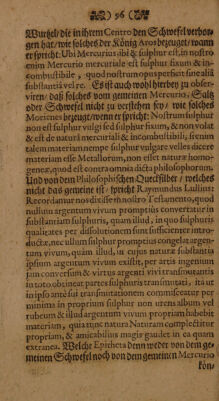 56
Wurtzel/ die in ihrem Centro den Schwefel verbor-
gen hat/ wie solches der König Aros bezeuget/ wann
er spricht: Ubi Mercurius sibi & sulphur est, in nostro
enim Mercurio mercuriale est sulphur fixum & in-
combustibile, quod nostrum opus perficit sine aliâ
substantiâ vel re. Es ist auch wohl hierbey zu obser-
viren/ daß solches vom gemeinen Mercurio, Saltz
oder Schwefel nicht zu verstehen sey/ wie solches
Morienes bezeuget/ wenn er spricht: Nostrum sulphur
non est sulphur vulgi sed sulphur fixum, & non volat
& est de naturâ mercuriali & incombustibili, secum
talem materiam nempe sulphur vulgare velles dicere
materiam esse Metallorum, non esset natura homo-
genea, quod est contra omnia dicta philosophorum.
Und von dem Philosophischen Quecksilber/ welches
nicht das gemeine ist/ spricht Raymundus Lullius:
Recordamur nos ditisse in nostro Testamento, quod
nullum argentum vivum promptius convertatur in
substantiam sulphuris, quam illud, in quo sulphuris
qualitates per dissolutionem sunt sufficienter intro-
ductæ, nec ullum sulphur promptius congelat argen-
tum vivum, quàm illud, in cujus naturâ substantia
ipsum argentum vivum existit, per artis ingenium
jam conversum & virtus argenti vivi transmutantis
in toto obtineat partes sulphuris transmutati, ita ut
in ipso ante sui transmutationem commisceatur per
minima in proprium sulphur non urens album vel
rubeum & illud argentum vivum propriam habebit
materiam, quia tunc natura Naturam complectitur
propriam, & amicabilius magis gaudet in ea quam
extranea. Welche Epitheta denn weder von dem ge-
meinen Schwefel noch von dem gemeinen Mercurio
kön-